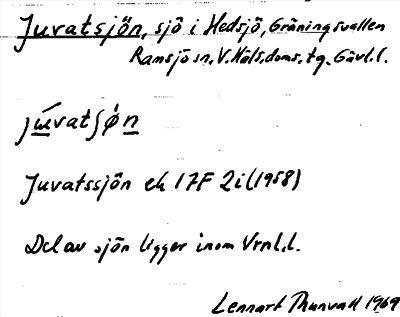 Juvatsjön, sjö i Hedsjö, Gräningsvallen
Ramsjö sn, V. Häls. doms. tg. Gävl. l.
júvatʃòn
Juvatssjön ek 17F 2i (1958)
Del av sjön ligger inom Vrnl. l.
Lennart Thunvall 1969